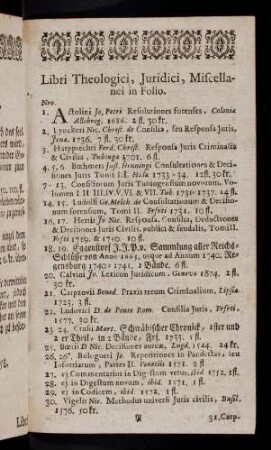 Libri Theologici, Juridici, Miscella-
nei in Folio.
Nro.
1. Actolini Jo. Petri Resolutiones forenses, Coloniæ
Allobrog. 1686. 2 fl. 30 kr.
2. Lynckeri Nic. Christ. de Consilia, seu Responsa Juris,
Jenæ. 1736. 7 fl. 30 kr.
3. Harpprechti Ferd. Christ. Responsa Juris Criminalia
& Civilia, Tubingæ 1701. 6 fl.
4. 5. 6. Bœhmeri Just. Henningi Consultationes & Deci-
siones Juris Tomi III. Halæ 1733 - 34. 12 fl. 30 kr.
7 - 13. Consiliorum Juris Tubingensium novorum. Vo-
lumen I II III. IV. V. VI. & VII. Tub. 1731-1737. 24 fl.
14. 15. Ludolfi Ge. Melch. de Consultationum & Decisio-
num forensium, Tomi II. 1731. 10 fl.
16. 17. Hertii Jo Nic. Responsa, Consilia, Deductiones
& Decisiones Juris Civilis, publici & feudalis, Tomi II.
1729. & 1730. 10 fl.
18. 19. Eggenstorf J. J. P. a. Sammlung aller Reichs-
Schlüsse von Anno 1663. usque ad Annum 1740. Re-
gensburg 1740 - 1741. 2 Bände. 6 fl.
20. Calvini Jo. Lexicon Juridicum, Genevæ 1674. 2 fl.
30 kr.
21. Carpzovii Bened. Praxis rerum Criminalium, Lipsiæ.
1723. 3 fl.
22. Ludovici D. de Ponte Rom. Consilia Juris,
1577. 30 kr.
23 24. Crusii Mart. Schwäbischer Chronick, 1ster und
2 er Theil, in 2 Bände, 1733. 5 fl.
25. Boerii D Nic. Decisiones aureæ, Lugd. 1544. 24 kr.
26. 26*. Bologneti Jo. Repetitiones in Pandectas, seu
Inforriatum, Partes II. Venetiis 1571. 2 fl
27. ej Commentarius in Dig-stum vetus, ibid. 1572. 1 fl.
28. ej in Digestum novum, ibid. 1571. 1 fl.
29. ej in Codicem, ibid. 1572. 1 fl.
30. Vigelii Nic. Methodus universi Juris civilis, Basil.
1576. 50 kr.
31. Carp.